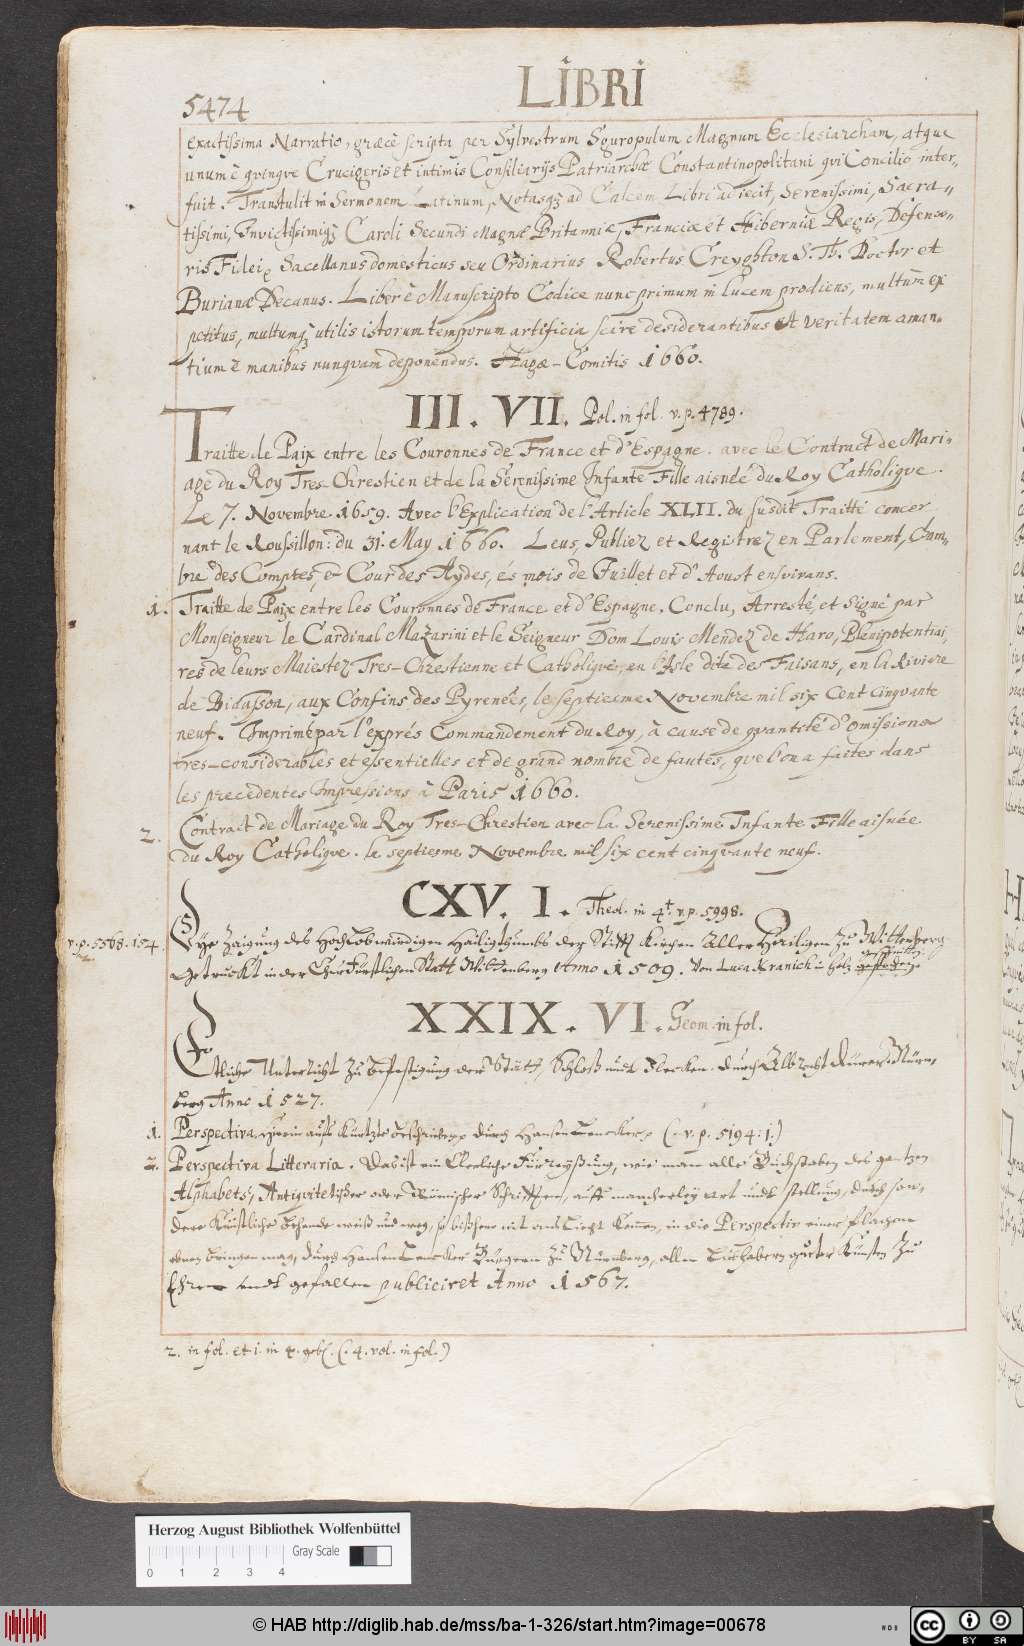 5474
LIBRI
exactissima Narratio, græcè scripta per Sylvestrum Sguropulum Magnum Ecclesiarcham, atque
unum è quinque Crucigeris et intimis Consiliarijs Patriarchæ Constantinopolitani qui Concilio inter-
fuit. Transtulit in Sermonem Latinum, Notasq; ad Calcem Libri adiecit, Serenissimi, Sacra-
tissimi, Invictissimiq; Caroli Secundi Magnæ Britanniæ, Franciæ et Hiberniæ Regis, Defenso-
ris Fidei, Sacellanus domesticus seu Ordinarius Robertus Creyghton S. Th. Doctor et
Burianæ Decanus. Liber è Manuscripto Codice nunc primum in lucem prodiens, multum ex
petitus, multumq; utilis istorum temporum artificia scire desiderantibus et veritatem aman-
tium è manibus nunquam deponendus. Hagæ-Comitis 1660.
III. VII. Pol. in fol. v. p. 4789.
Traitte de Paix entre les Couronnes de France et d'Espagne. avec le Contract de Mari-
age du Roy Tres-Chrestien et de la Serenissime Infante Fille aisnéé du Roy Catholique.
Le 7. Novembre 1659. Avec l'Explication de l'Article XLII. du susdit Traitté concer
nant le Roussillon: du 31. May 1660. Leus, Publiez et Registrez en Parlement, Cham-
bre des Comptes, & Cour des Aydes, és mois de Juillet et d'Aoust ensuivans.
1. Traitte de Paix entre les Couronnes de France et d'Espagne. Conclu, Arresté, et Signé par
Monseigneur le Cardinal Mazarini et le Seigneur Dom Louis Mendez de Haro, Plenipotentiai,
res de leurs Maiestez Tres-Chrestienne et Catholique, en l'Isle dite des Faisans, en la Riviere
de Bidasson, aux Confins des Pyrenées, le septiesme Novembre mil six Cent Cinquante
neuf. Imprimé par l'exprés Commandement du Roy, à cause de quantité d'omissions
tres-considerables et essentielles et de grand nombre de fautes, que l'on a faites dans
les precedentes Impressions à Paris 1660.
2. Contract de Mariage du Roy Tres-Chrestien avec la Serenissime Infante Fille aisnée
du Roy Catholique. le septiesme Novembre mil six cent cinquante neuf.
CXV. I. Theol. in 4t. v. p. 5998.
v. p. 5368. 154. Dye Zaigung des Hochlobwirdigen Hailigthumbs der Stifft Kirchen Aller Heiligen zu Wittenberg
Getruckt in der Churfürstlichen Statt Wittenberg Anno 1509. Von Luca Kranich in Holz geschnitten
XXIX. VI. Geom. in fol.
Etliche Unterricht zu Befestigung der Stätt, Schloß undt Flecken. durch Albrecht Dürer. Nürn-
berg Anno 1527.
1. Perspectiva. Hierin aufs Kürtzte beschrieben durch Hansen Lencker. (. v. p. 5194: 1.)
2. Perspectiva Litteraria. Das ist ein Clerliche Fürreyßung, wie man alle Buchstaben des gantzen
Alphabets, Antiquitetisher oder Römischer Schrifften, auff mancherley art undt stellung, durch son-
dere Künstliche behende weiß und weg, so bißhero nit ans Liecht kommen, in die Perspectiv einer flachen
ebnen bringen mag, durch Hansen Lencker Burgern zu Nürnberg, allen Liebhabern guter Künsten zu
Ehren undt gefallen publiciret Anno 1567.
2. in fol. et 1. in 4. (. 4. vol. in fol.)
Herzog August Bibliothek Wolfenbüttel
Gray Scale
0 1 2 3 4
© HAB http://diglib.hab.de/mss/ba-1-326/start.htm?image=00678
cc BY SA